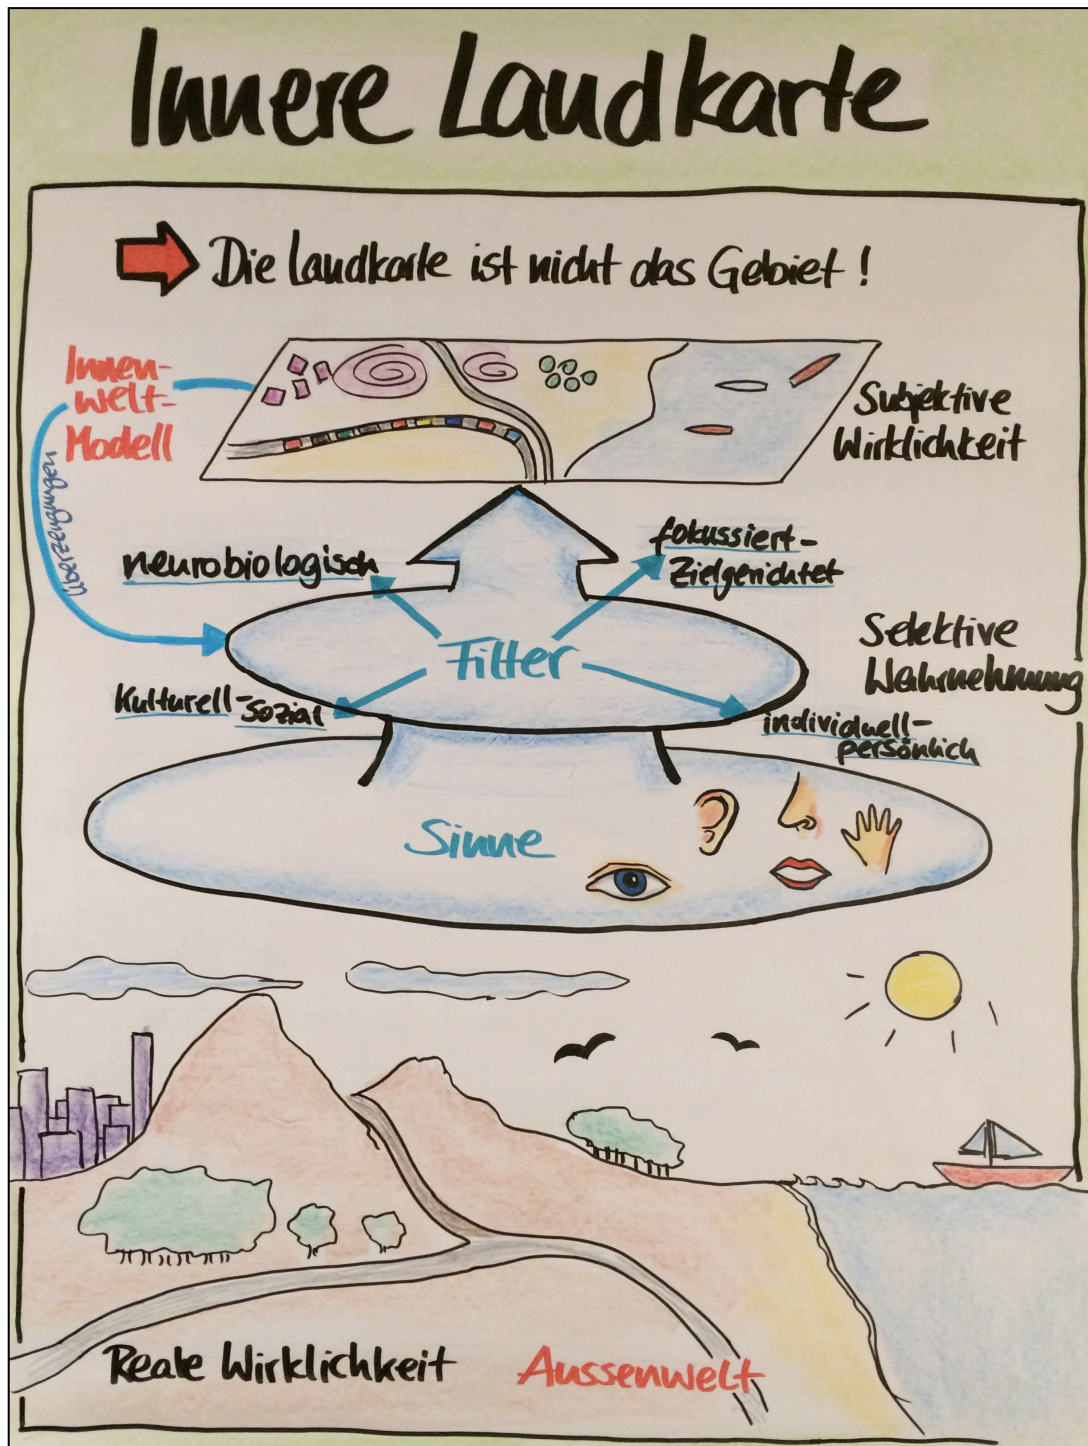 Innere Landkarte
Die Landkarte ist nicht das Gebiet!
Innen-
welt-
Modell
Überzeugungen
Subjektive
Wirklichkeit
neurobiologisch
fokussiert-
Zielgerichtet
Filter
Selektive
Wahrnehmung
Kulturell-
Sozial
individuell-
persönlich
Sinne
Reale Wirklichkeit
Aussenwelt